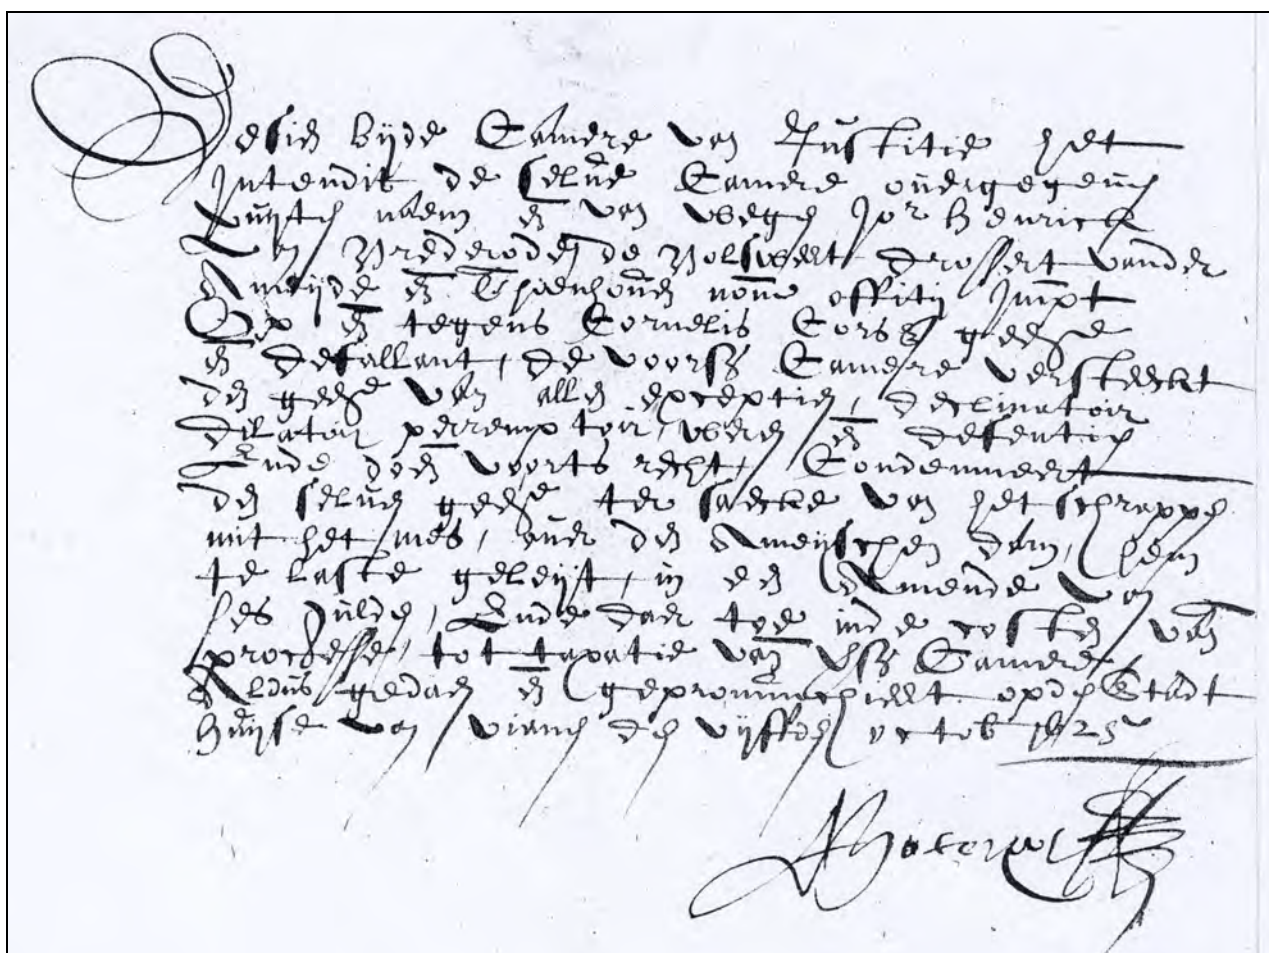 Gesien bijde Camere van Justitie het
Intendit de selve Camere overgegeven
Uuijten naem en van wegen Jor Henrick
Van Brederoden de Bolswert drossert vander
Ameijde en Thienhoven nom offitij Impt
Op en tegens Cornelis Cors gedde
en defallant, de voorss Camere versteeckt
den gedde van allen exceptien, declinatoir
dilatoir perremptoir, weren en defentien
Ende doen voorts recht, Condemneert
den selven gedde ter saecke van het schrappen
mit het mes, over den Ameijschen dam, hem
te laste geleijt, in een Amende van
ses gulden, Ende daer toe inde costen van
processe, tot taxatie van vss Camere
Aldus gedaen en gepronunchieert opden Stadt
huijse van Vianen den vijfften octob 1625